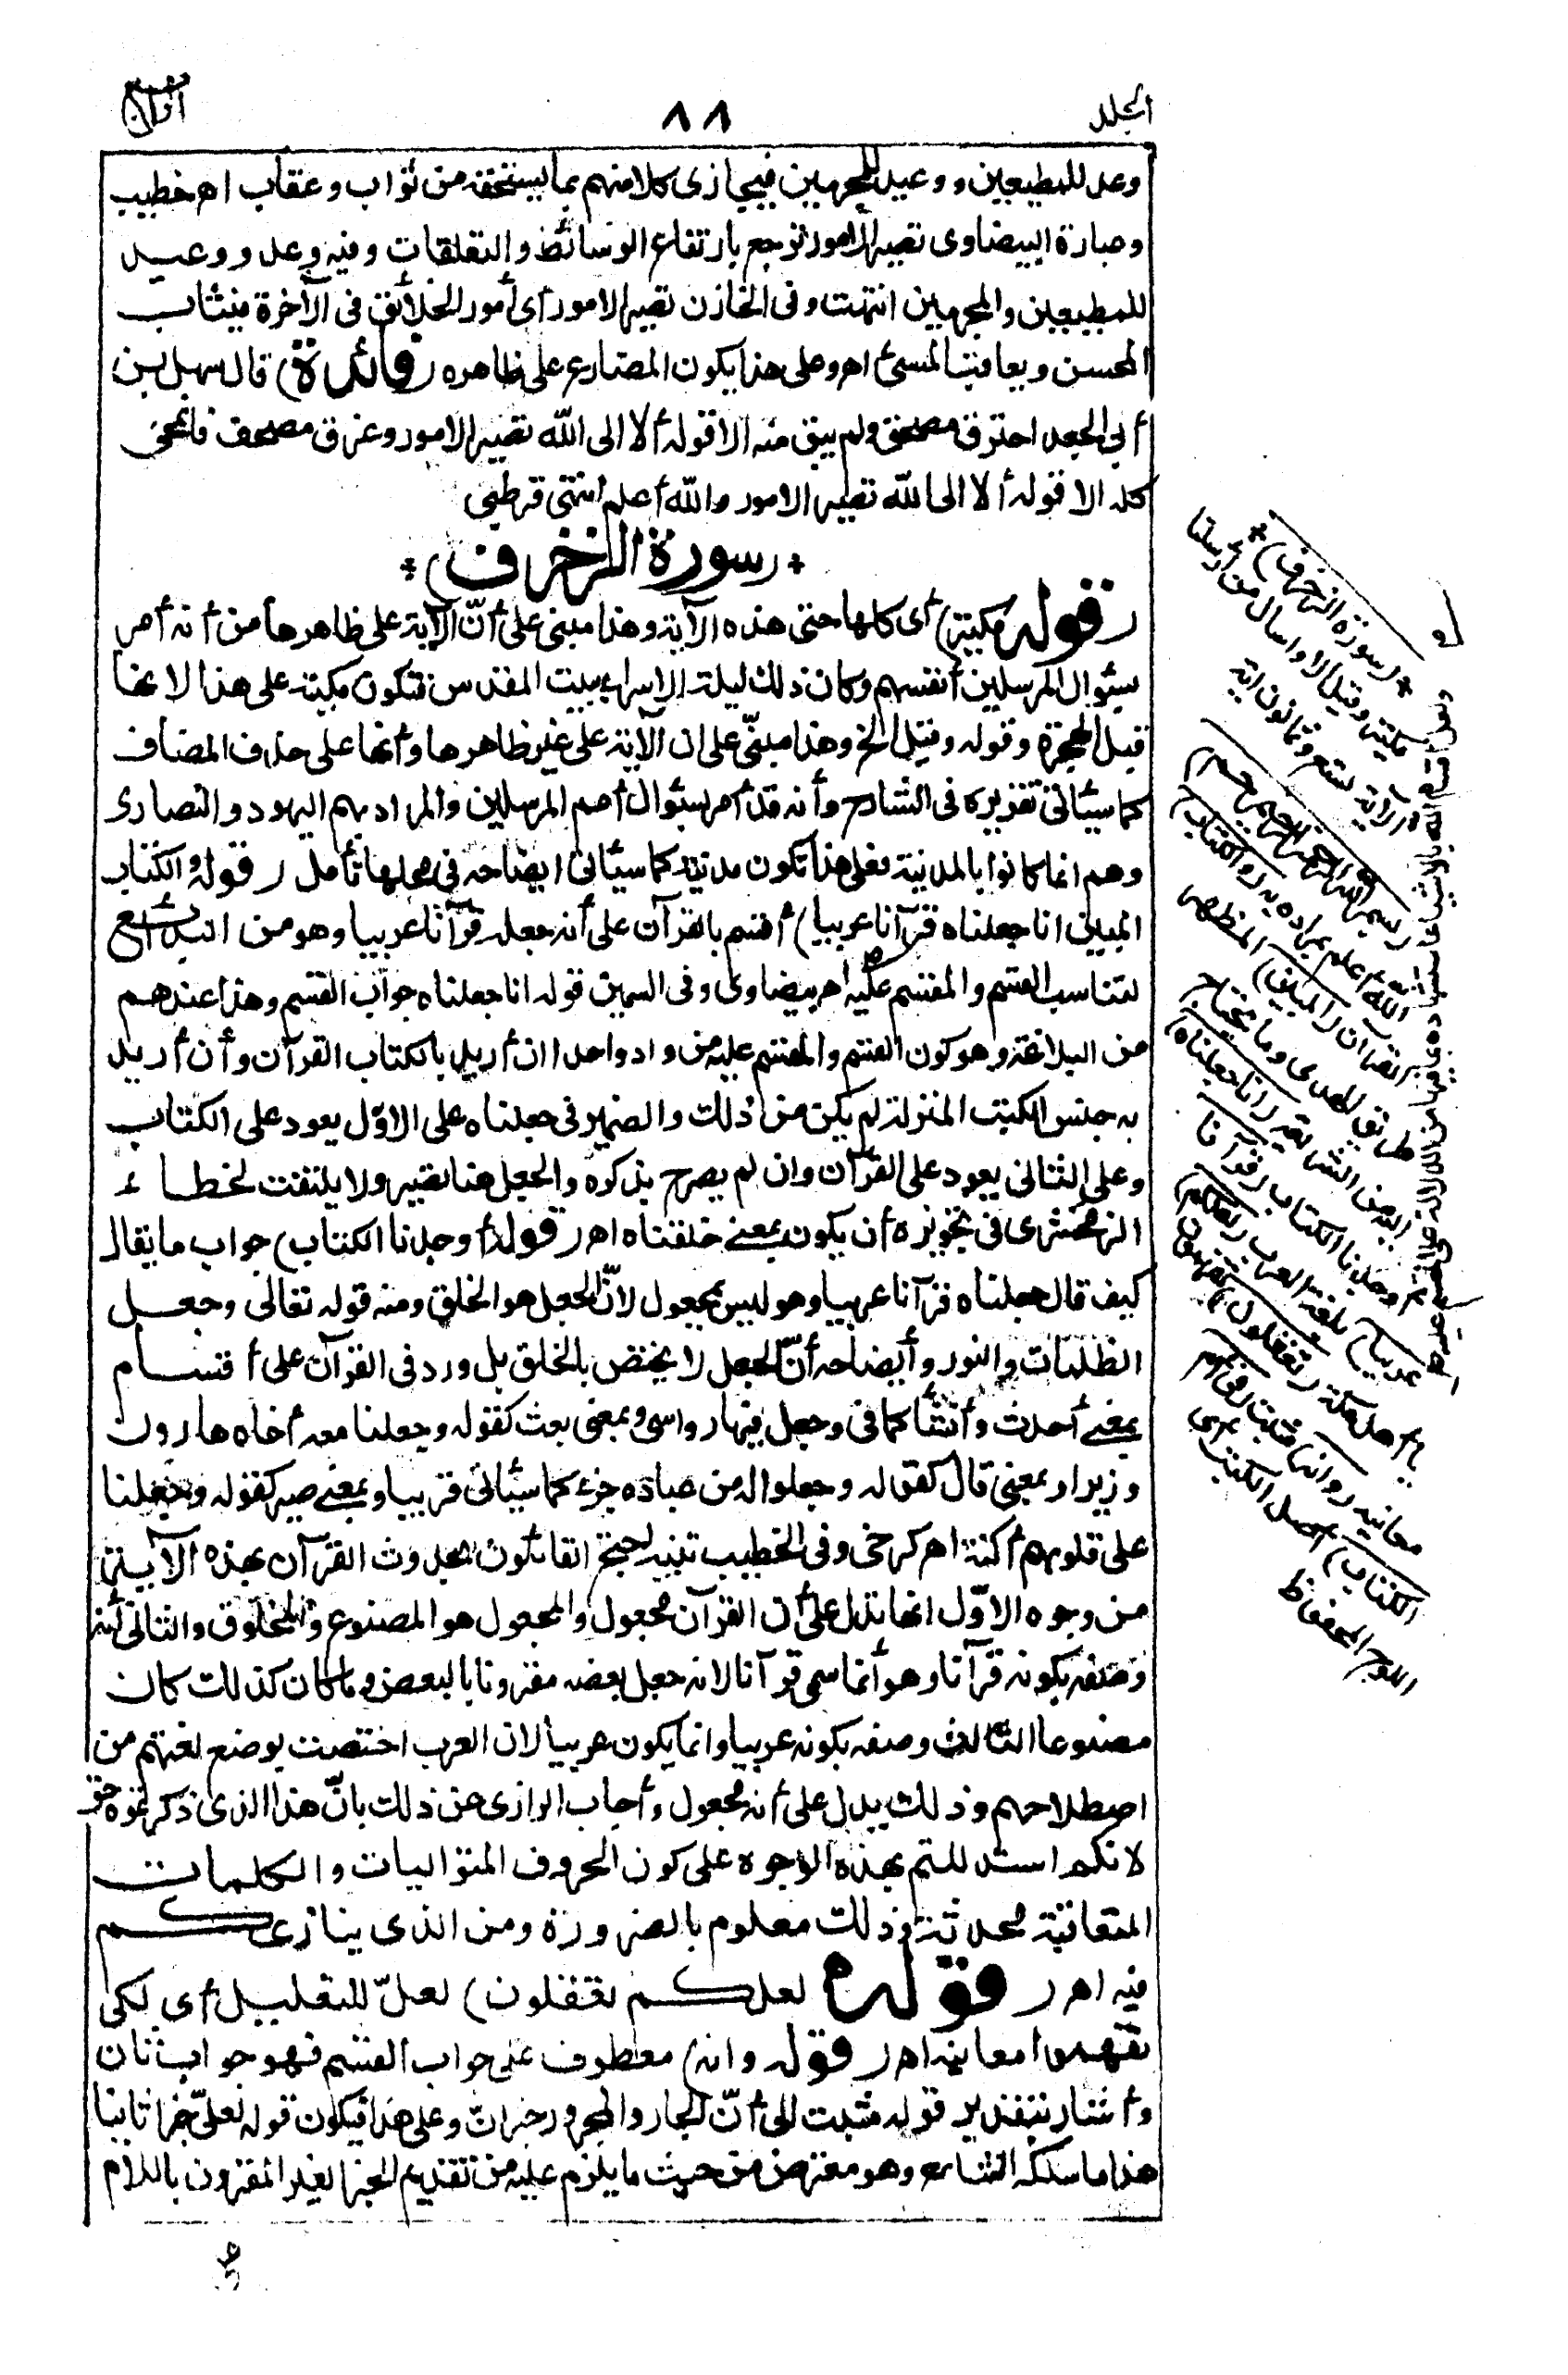 الجلد
٨٨
الرابع
وعد للمطيعين ووعيد للمجرمين فيجازى كلا منهم بما يستحقه من ثواب وعقاب اه خطيب
وعبارة البيضاوى تصير الامور ترجع بارتفاع الوسائط والتعلقات وفيه وعد ووعيد
للمطيعين والمجرمين انتهت وفى الخازن تصير الامور أى أمور الخلائق فى الآخرة فيثاب
المحسن ويعاقب المسئ اه وعلى هذا يكون المضارع على ظاهره (فائدة) قال سهل بن
أبى الجعد احترق مصحف ولم يبق منه الا قوله ألا الى الله تصير الامور وغرق مصحف فانمحى
كله الا قوله ألا الى الله تصير الامور والله أعلم انتهى قرطبى
* (سورة الزخرف) *
(قوله مكية) أى كلها حتى هذه الآية وهذا مبنى على أنّ الآية على ظاهرها من أنه أمر
بسؤال المرسلين أنفسهم وكان ذلك ليلة الاسراء ببيت المقدس فتكون مكية على هذا لانها
قبل الهجرة وقوله وقيل الخ وهذا مبنىّ على ان الآية على غير ظاهرها وأنها على حذف المضاف
كما سيأتى تقريره فى الشارح وأنه قد أمر بسؤال أمم المرسلين والمراد بهم اليهود والنصارى
وهم انما كانوا بالمدينة فعلى هذا تكون مدنية كما سيأتى ايضاحه فى محلها تأمل (قوله والكتاب
المبين انا جعلناه قرآنا عربيا) أقسم بالقرآن على أنه جعله قرآنا عربيا وهو من البدائع
لتناسب القسم والمقسم عليه اه بيضاوى وفى السمين قوله انا جعلناه جواب القسم وهذا عندهم
من البلاغة وهو كون القسم والمقسم عليه من واد واحد ان أريد بالكتاب القرآن وأن أريد
به جنس الكتب المنزلة لم يكن من ذلك والضمير فى جعلناه على الاوّل يعود على الكتاب
وعلى الثانى يعود على القرآن وان لم يصرح بذكره والجعل هنا تصيير ولا يلتفت لخطاء
الزمخشرى فى تجويزه أن يكون بمعنى خلقناه اه (قوله أوجدنا الكتاب) جواب ما يقال
كيف قال جعلناه قرآنا عربيا وهو ليس بمجعول لانّ الجعل هو الخلق ومنه قوله تعالى وجعل
الظلمات والنور وأيضاحه أنّ الجعل لا يختص بالخلق بل ورد فى القرآن على أقسام
بمعنى أحدث وأنشأ كما فى وجعل فيها رواسى وبمعنى بعث كقوله وجعلنا معه أخاه هارون
وزيرا وبمعنى قال كقوله وجعلوا له من عباده جزء كما سيأتى قريبا وبمعنى صير كقوله وجعلنا
على قلوبهم أكنة اه كرخى وفى الخطيب تنبيه احتج القائلون بحدوث القرآن بهذه الآية
من وجوه الاوّل انها تدل على أن القرآن مجعول والمجعول هو المصنوع والمخلوق والثانى أنه
وصفه بكونه قرآنا وهو أنما سمى قرآنا لانه جعل بعضه مقرونا بالبعض وما كان كذلك كان
مصنوعا الثالث وصفه بكونه عربيا وانما يكون عربيا لان العرب اختصت بوضع لغتهم من
اصطلاحهم وذلك يدل على أنه مجعول وأجاب الرازى عن ذلك بانّ هذا الذى ذكرتموه حق
لانكم استدللتم بهذه الوجوه على كون الحروف المتواليات والكلمات
المتعاقبة محدثة وذلك معلوم بالضرورة ومن الذى ينازعكم
فيه اه (قوله لعلكم تعقلون) لعلّ للتعليل أى لكى
تفهموا معانيه اه (قوله وانه) معطوف على جواب القسم فهو جواب ثان
وأشار بتقدير قوله مثبت الى أنّ الجار والمجرور خبر انّ وعلى هذا فيكون قوله لعلىّ خبرا ثانيا
هذا ما سلكه الشارح وهو معترض من حيث ما يلزم عليه من تقديم الخبر الغير المقرون باللام
* (سورة الزخرف) *
مكية وقيل الا واسأل من أرسلنا
الآية تسع وثمانون آية
(بسم الله الرحمن الرحيم حم)
الله أعلم بمراده به (والكتاب)
القرآن (المبين) المظهر
طريق الهدى وما يحتاج
اليه من الشريعة (انا جعلناه)
أوجدنا الكتاب (قرآنا
عربيا) بلغة العرب (لعلكم)
يا أهل مكة (تعقلون) تفهمون
معانيه (وانه) مثبت (فى أم
الكتاب) أصل الكتب أى
اللوح المحفوظ